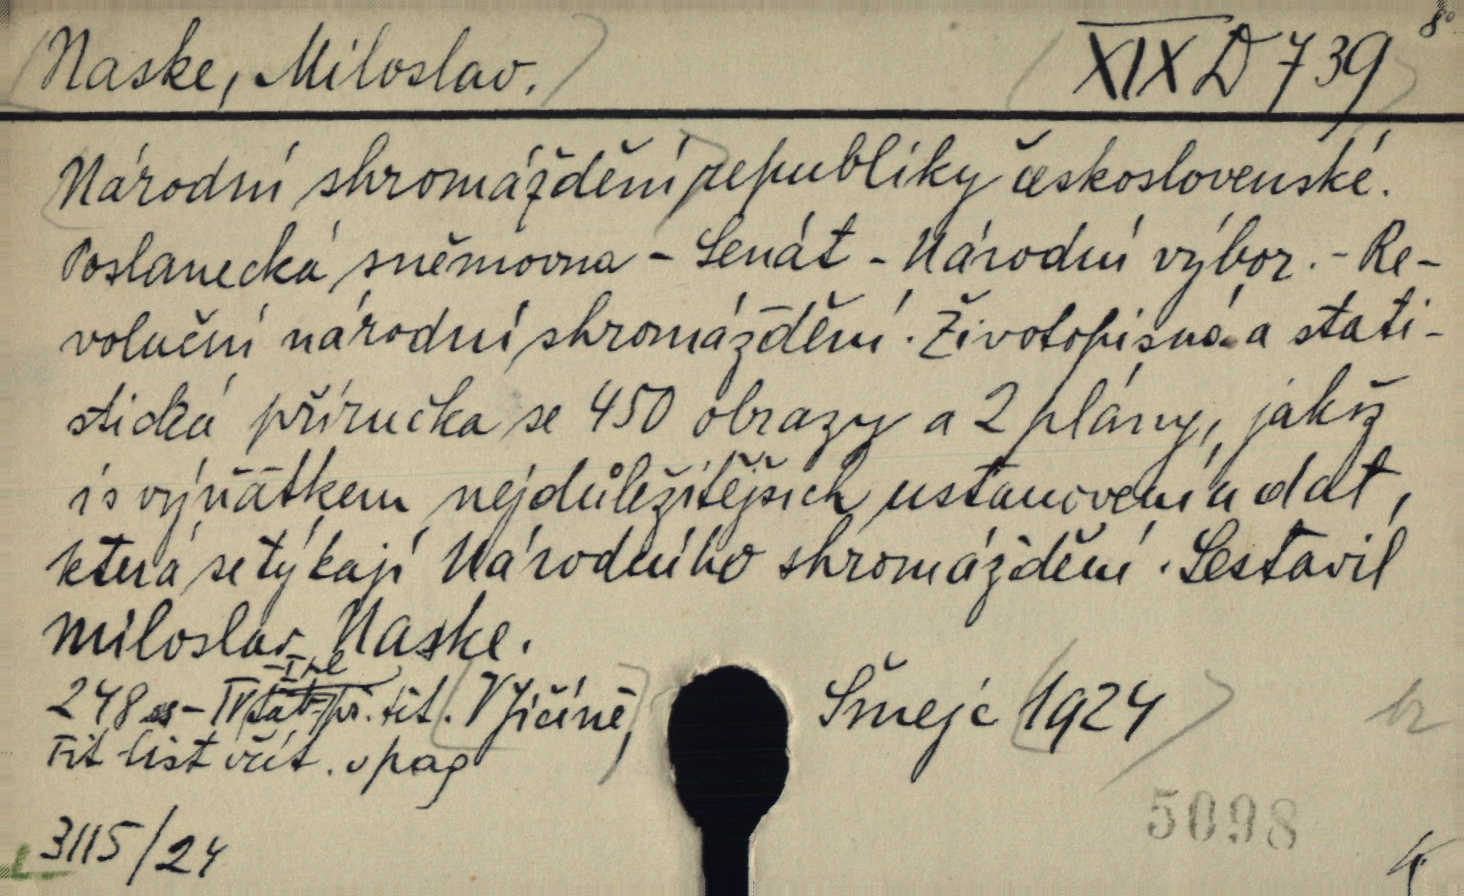 Naske, Miloslav. XIX D 739 8°
Národní shromáždění republiky československé.
Poslanecká sněmovna - Senát - Národní výbor. - Re-
voluční národní shromáždění. Životopisná a stati-
stická příručka se 450 obrazy a 2 plány, jakož
i s výňatkem nejdůležitějších ustanovení a dat,
která se týkají Národního shromáždění. Sestavil
Miloslav Naske.
248 s - IV tit. V Jičíně, Šmejc 1924
Tit list včít. v pag
3115/24
5098